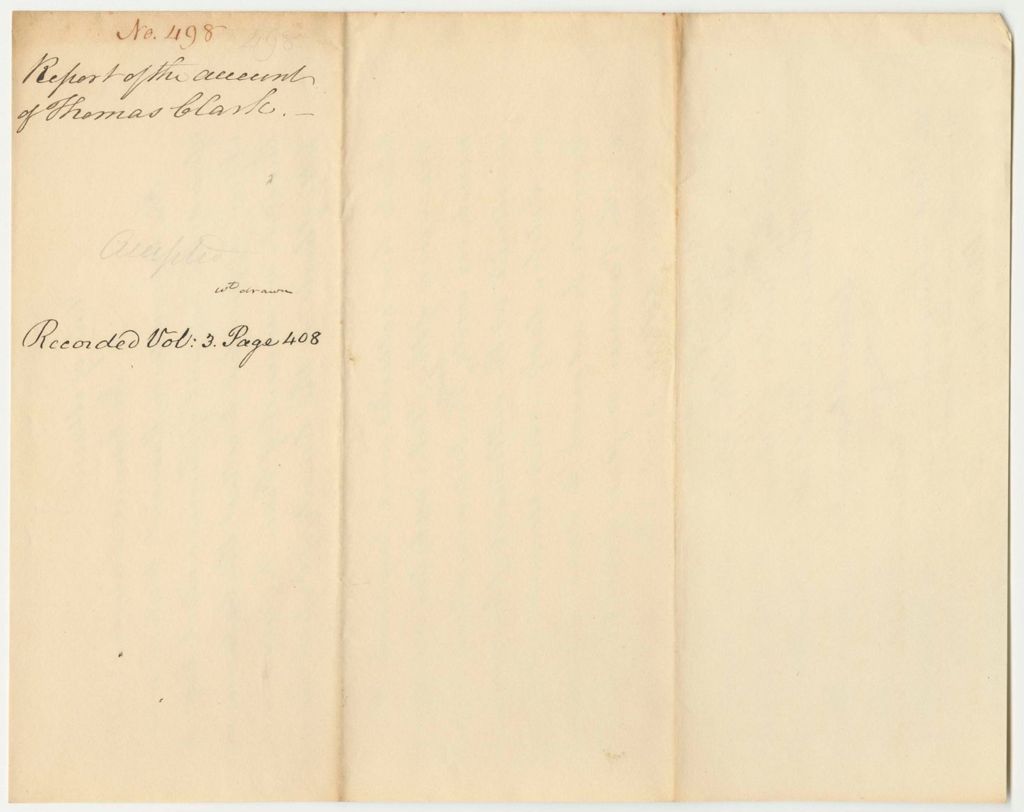 No. 498
Report of the account
of Thomas Clark. —
Accepted
wt drawn
Recorded Vol: 3. Page 408